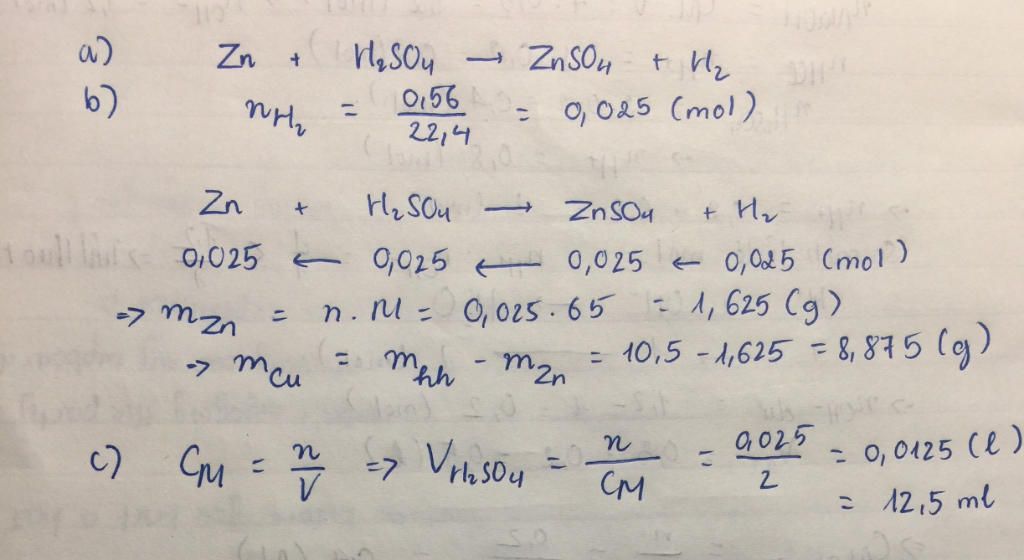 a) Zn + H₂SO₄ → ZnSO₄ + H₂
b) n_H₂ = 0,56/22,4 = 0,025 (mol)
Zn + H₂SO₄ → ZnSO₄ + H₂
0,025 ← 0,025 ← 0,025 ← 0,025 (mol)
=> m_Zn = n . M = 0,025 . 65 = 1,625 (g)
=> m_Cu = m_hh - m_Zn = 10,5 - 1,625 = 8,875 (g)
c) CM = n/V => V_H₂SO₄ = n/CM = 0,025/2 = 0,0125 (l)
= 12,5 ml